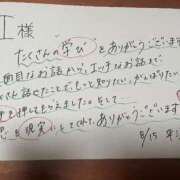 工様
たくさんの学びをありがとうございます
面目なお話から、エッチなお話まで
さん話せたことで、もっと知りたい、がんばりたい
を押してもらえました。そして
を現実にしてくれて、ありがとうございます
8/15